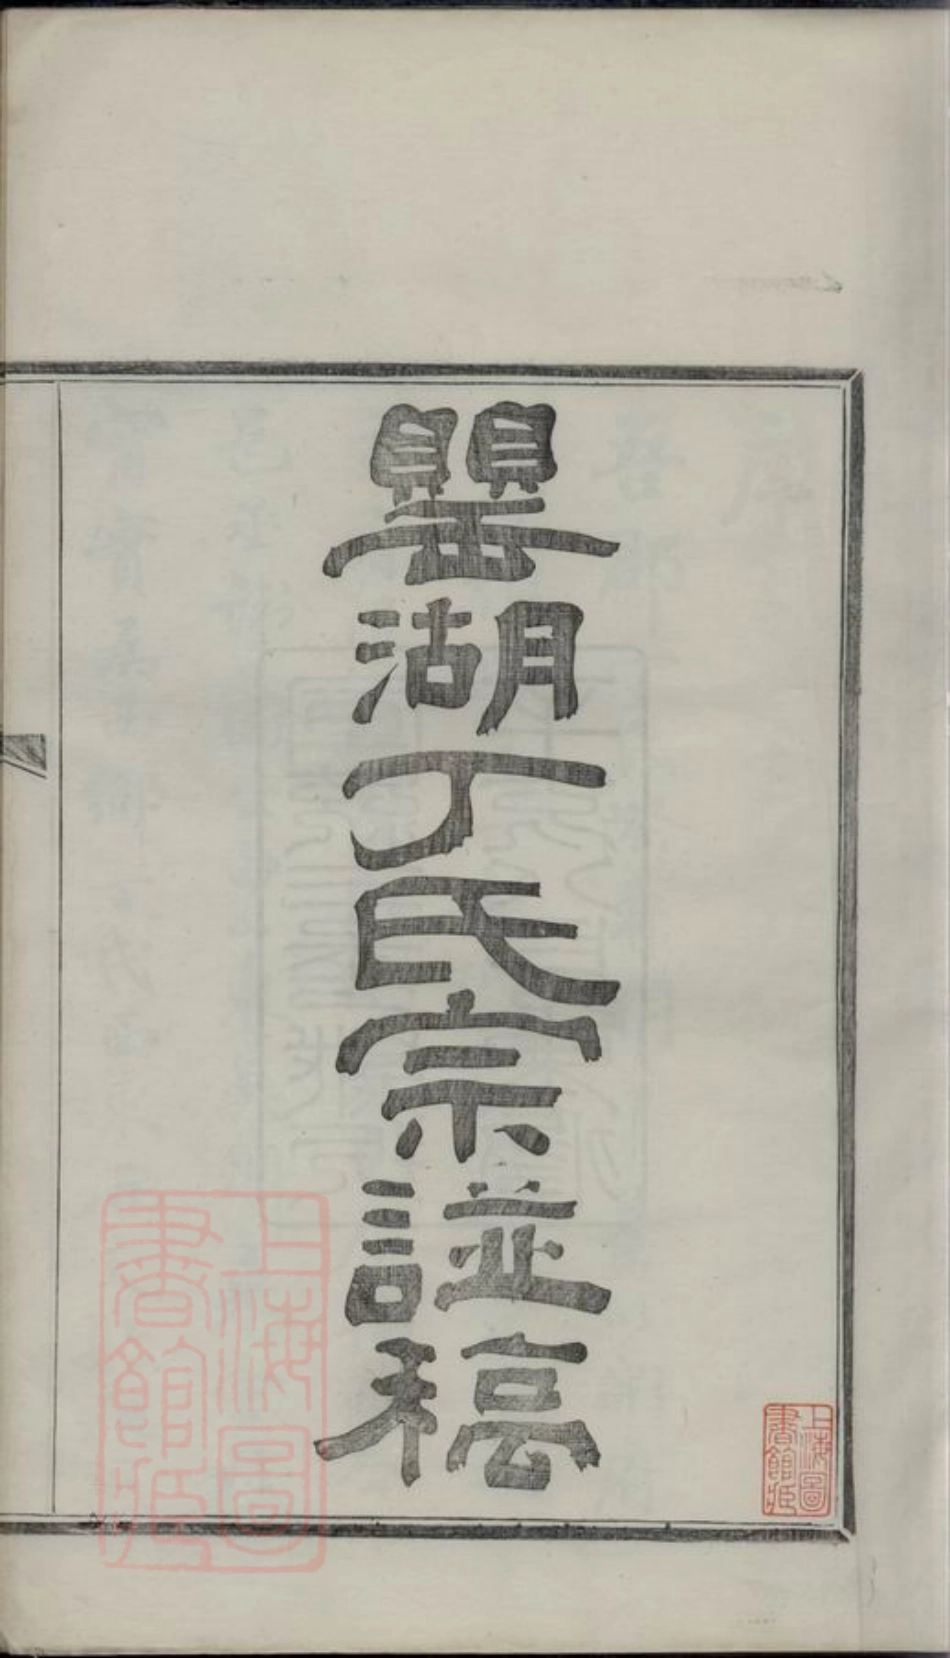 罌湖丁氏宗譜稿
上海圖
書館藏
上海圖
書館藏